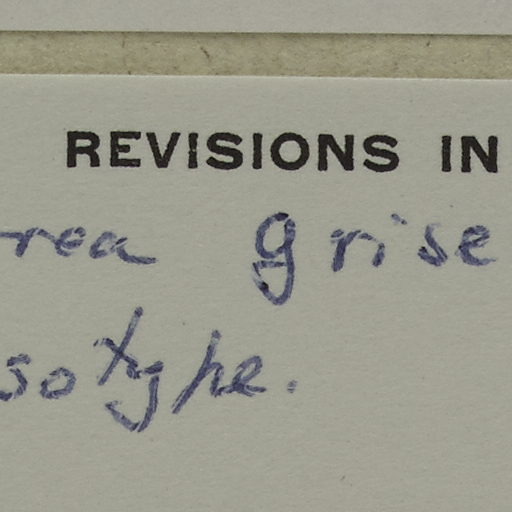 REVISIONS IN
rea grise
sotype.